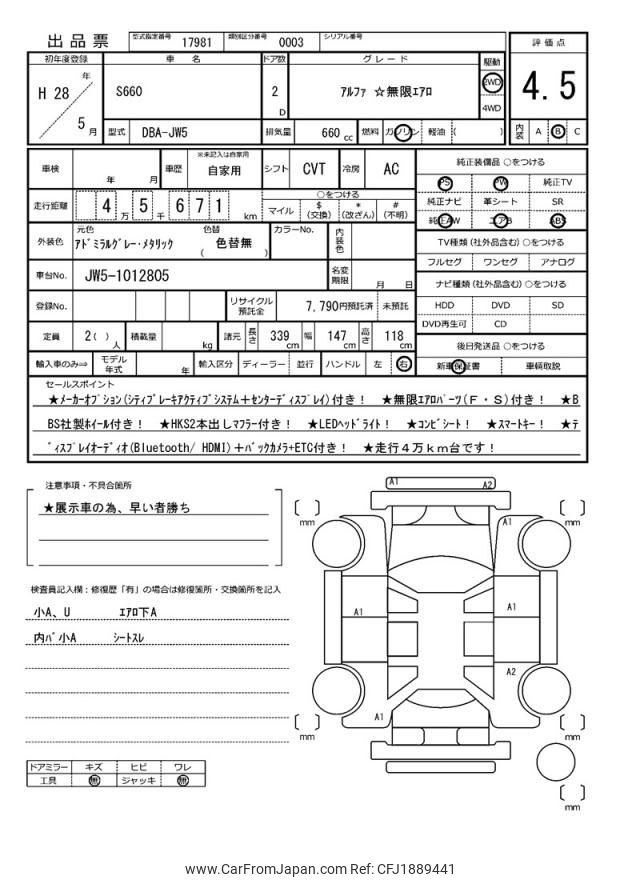 出品票 型式指定番号 17981 類別区分番号 0003 シリアル番号
評価点
4.5
内装 A B C
初年度登録 車名 ドア数 グレード 駆動
H 28 年 5 月
S660
2 D
アルファ ☆無限エアロ
2WD
4WD
型式 DBA-JW5 排気量 660 cc 燃料 ガソリン 軽油 ( )
車検 年 月 車歴 ※未記入は自家用 自家用 シフト CVT 冷房 AC
走行距離 4 万 5 千 6 7 1 km
○をつける
マイル $ (交換) * (改ざん) # (不明)
外装色 元色 アドミラルグレー・メタリック 色替 色替無 ( ) カラーNo. 内装色
車台No. JW5-1012805 名変期限 月 日
登録No. リサイクル預託金 7,790円預託済 未預託
定員 2( ) 人 積載量 kg 諸元 長さ 339 cm 幅 147 cm 高さ 118 cm
輸入車のみ⇒ モデル年式 年 輸入区分 ディーラー 並行 ハンドル 左 右
純正装備品 ○をつける
PS PW 純正TV
純正ナビ 革シート SR
純正AW エアB ABS
TV種類(社外品含む)○をつける
フルセグ ワンセグ アナログ
ナビ種類(社外品含む)○をつける
HDD DVD SD
DVD再生可 CD
後日発送品 ○をつける
新車保証書 車輌取説
セールスポイント
★メーカーオプション(シティブレーキアクティブシステム+センターディスプレイ)付き! ★無限エアロパーツ(F・S)付き! ★B
BS社製ホイール付き! ★HKS2本出しマフラー付き! ★LEDヘッドライト! ★コンビシート! ★スマートキー! ★デ
ィスプレイオーディオ(Bluetooth/ HDMI)+バックカメラ+ETC付き! ★走行4万km台です!
注意事項・不具合箇所
★展示車の為、早い者勝ち
検査員記入欄：修復歴「有」の場合は修復箇所・交換箇所を記入
小A、U エアロ下A
内バ小A シートスレ
ドアミラー キズ ヒビ ワレ
工具 無 ジャッキ 無
A1 A2
A1
A1 A1
A2
A1
mm mm
mm mm
mm
www.CarFromJapan.com Ref: CFJ1889441